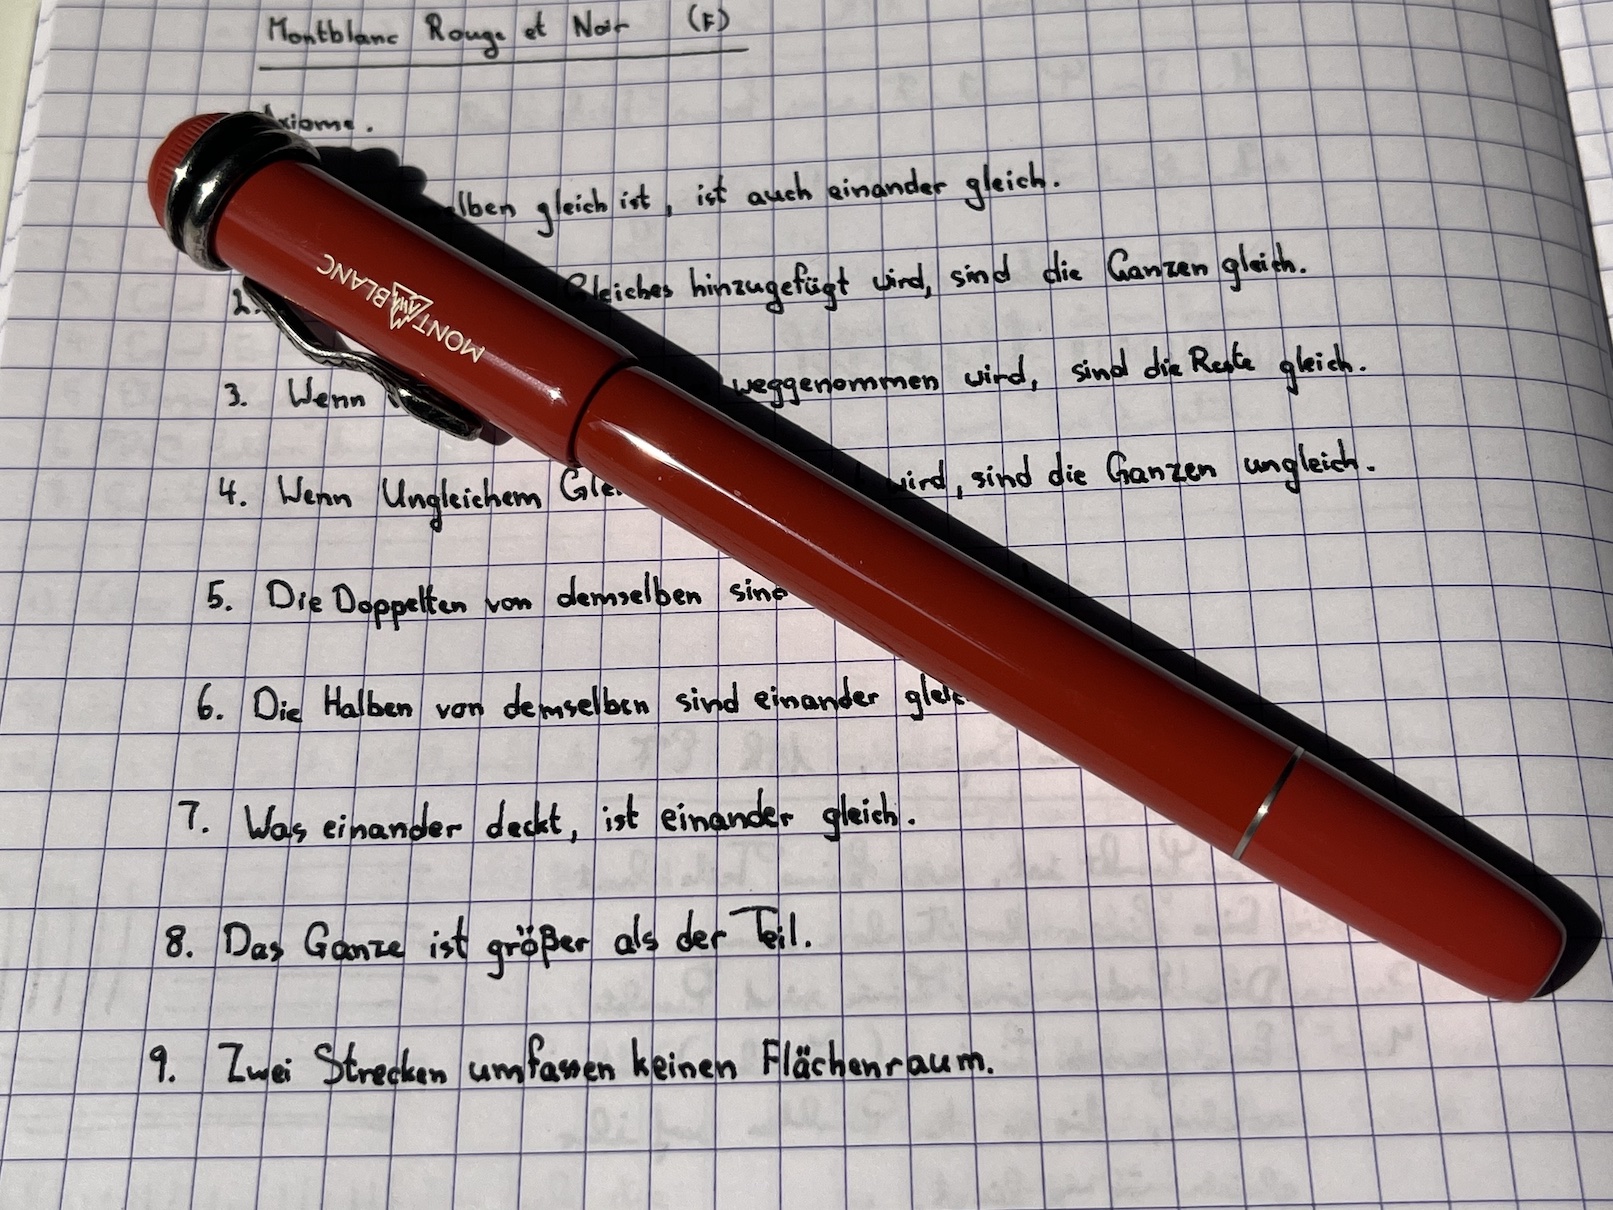 Montblanc Rouge et Noir (F)
Axiome.
elben gleich ist, ist auch einander gleich.
2. Gleiches hinzugefügt wird, sind die Ganzen gleich.
3. Wenn weggenommen wird, sind die Reste gleich.
4. Wenn Ungleichem Gle wird, sind die Ganzen ungleich.
5. Die Doppelten von demselben sind
6. Die Halben von demselben sind einander gleic
7. Was einander deckt, ist einander gleich.
8. Das Ganze ist größer als der Teil.
9. Zwei Strecken umfassen keinen Flächenraum.
MONTBLANC